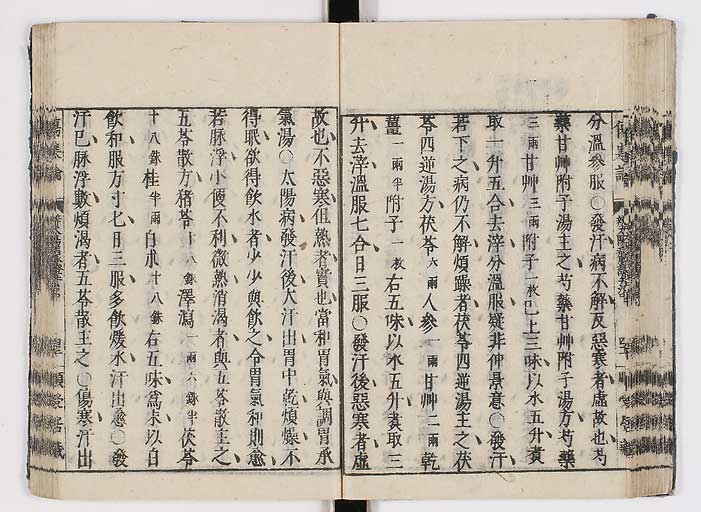 分溫叄服○發汗病不解反惡寒者虛故也芍
藥甘艸附子湯主之芍藥甘艸附子湯方芍藥
三兩甘艸三兩附子一枚已上三味以水五升煑
取一升五合去滓分溫服疑非仲景意○發汗
若下之病仍不解煩躁者茯苓四逆湯主之茯
苓四逆湯方茯苓六兩人參一兩甘艸二兩乾
薑一兩半附子一枚右五味以水五升煑取三
升去滓溫服七合日三服○發汗後惡寒者虛
故也不惡寒但熱者實也當和胃氣與調胃承
氣湯○太陽病發汗後大汗出胃中乾煩燥不
得眠欲得飲水者少少與飲之令胃氣和則愈
若脉浮小便不利微熱消渴者與五苓散主之
五苓散方猪苓十八銖澤瀉一兩六銖半茯苓
十八銖桂半兩白朮十八銖右五味爲末以白
飲和服方寸七日三服多飲煖水汗出愈○發
汗已脉浮數煩渴者五苓散主之○傷寒汗出
傷寒論